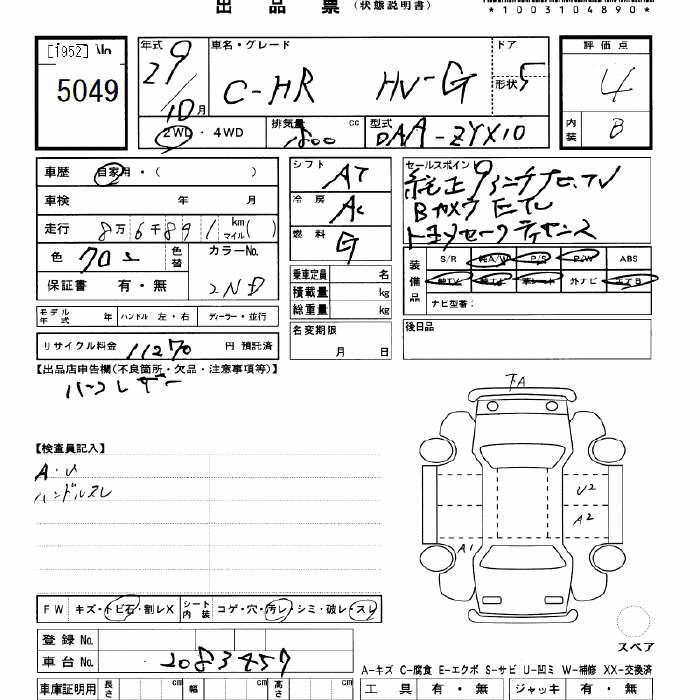 出品票（状態説明書）
*1003104890*
[1952]
5049
年式 29 10月
車名・グレード C-HR HV-G
ドア 5
形状
評価点 4
内装 B
2WD・4WD
排気量 1800 cc
型式 DAA-ZYX10
車歴 自家用・( )
車検 年 月
走行 8万6千891 km マイル( )
色 クロ2 色替 カラーNo. 2ND
保証書 有・無
モデル年式 年 ハンドル 左・右 ディーラー・並行
リサイクル料金 11270 円 預託済
シフト AT
冷房 AC
燃料 G
乗車定員 名
積載量 kg
総重量 kg
名変期限 月 日
セールスポイント
純正9インチナビTV
Bカメラ ETC
トヨタセーフティセンス
装備品 S/R 純A/W P/S P/W ABS
純TV 革シート 外ナビ エアB
ナビ型番：
後日品
【出品店申告欄(不良箇所・欠品・注意事項等)】
ハーフレザー
【検査員記入】
A・U
ハンドルスレ
下A
U2
A2
A1
FW キズ・トビ石・割レX シート内装 コゲ・穴・汚レ・シミ・破レ・スレ
登録 No.
車台 No. 2083457
スペア
A-キズ C-腐食 E-エクボ S-サビ U-凹ミ W-補修 XX-交換済
車庫証明用 長さ cm 幅 cm 高さ cm
工具 有・無 ジャッキ 有・無